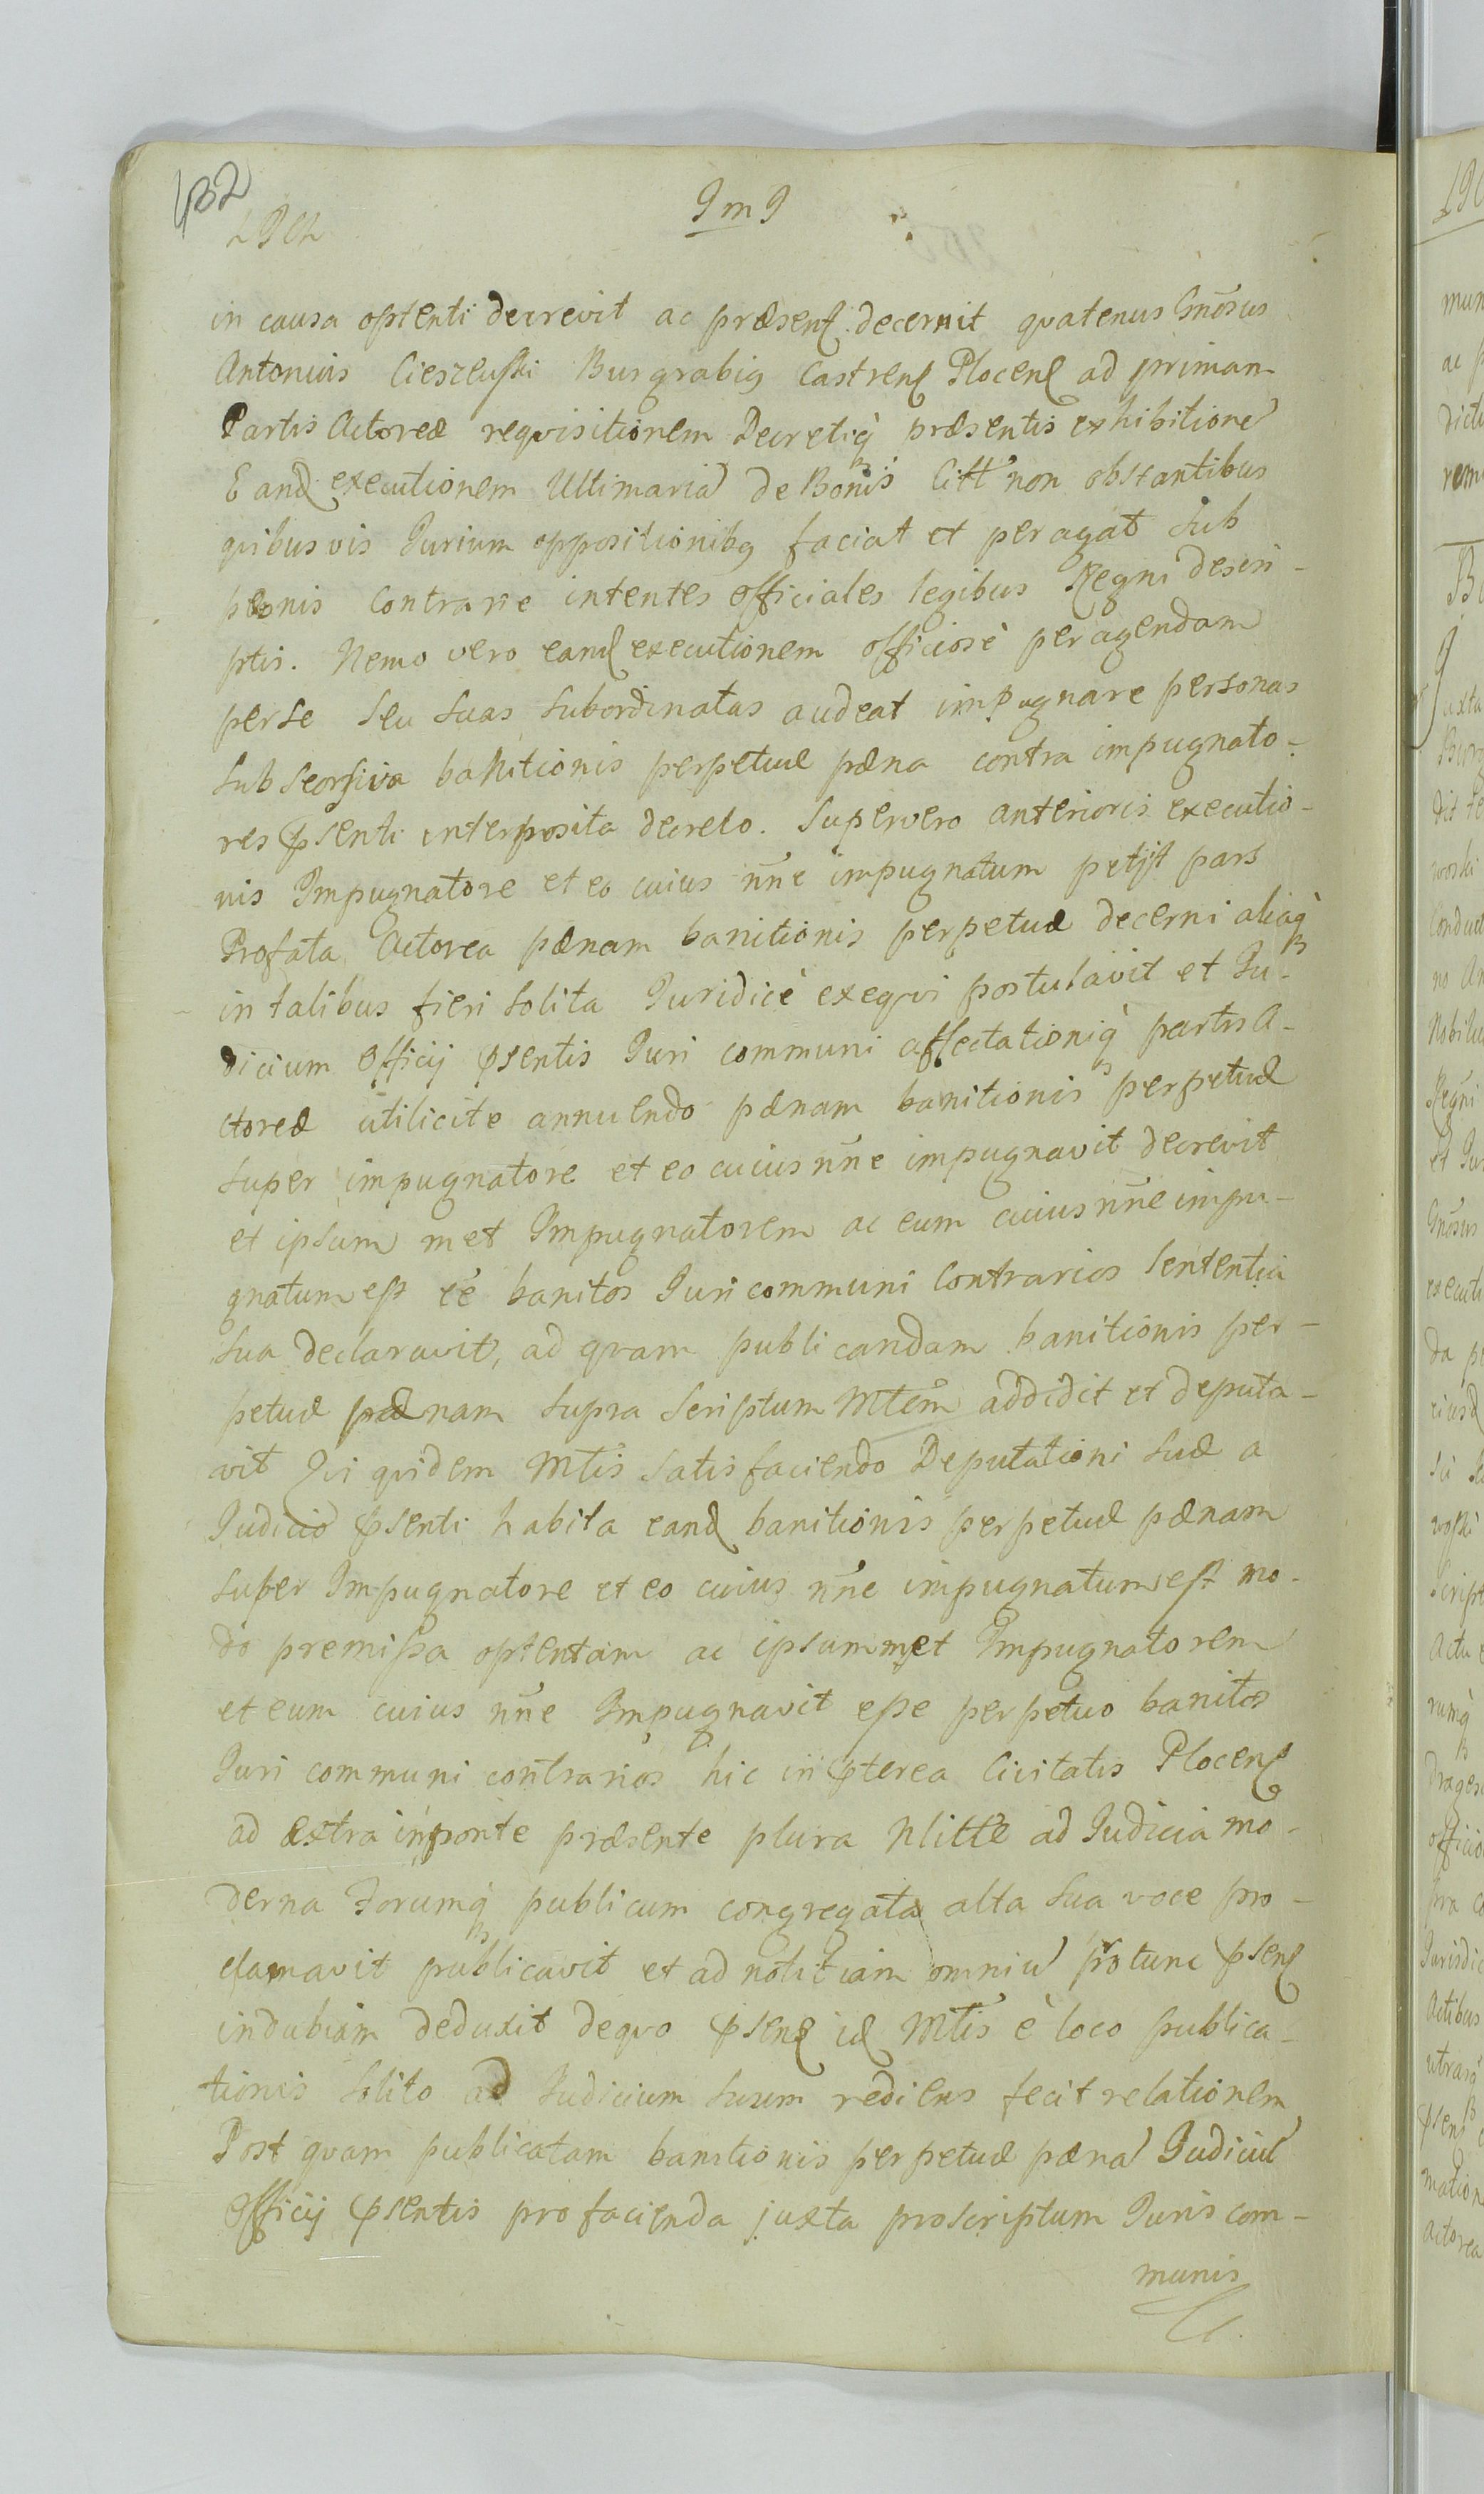 432
JmJ
in causa optenti decrevit ac præsenſ decernit qvatenus Gnōsus
Antonius Cieszewski Burgrabiꝯ Castrenſ Plocenſ ad primam
Partis Actoreæ reqvisitionem Decretiq̀ præsentis exhibitionē
Eand executionem Ultimariā de Bonis Citt non obstantibus
qvibusvis Jurium oppositionibꝯ faciat et peragat sub
pænis Contrarie intentes officiales legibus Regni descri-
ptis. Nemo vero eand executionem officiosè peragendam
per se seu suas subordinatas audeat impugnare personas
sub seorsiva banitionis perpetuæ pæna contra impugnato-
res ꝓsenti interposita decreto. Super vero anterioris executio-
nis Impugnatore et eo cuius nn̄e impugnatum petijt pars
Profata Actorea pænam banitionis perpetuæ decerni aliaq̀
in talibus fieri solita Juridicè exeqvi postulavit et Ju-
dicium Officij ꝓsentis Juri communi affectationiq̀ partis A-
ctoreæ uti licite annuendo pænam banitionis perpetuæ
super impugnatore et eo cuius nn̄e impugnavit decrevit
et ipsum met Impugnatorem ac eum cuius nn̄e impu-
gnatum est eē banitos Juri communi Contrarios sententia
sua declaravit, ad qvam publicandam banitionis per-
petuæ pænam supra scriptum Mtēm addidit et deputa-
vit Qvi qvidem Mtis satisfaciendo Deputationi suæ a
Judicio ꝓsenti habita eand banitionis perpetuæ pænam
super Impugnatore et eo cuius nn̄e impugnatum est mo-
do premissa optentam ac ipsummet Impugnatorem
et eum cuius nn̄e Impugnavit esse perpetuo banitos
Juri communi contrarios hic in ꝓterea Civitatis Plocenſ
ad extra in ponte præsente plura Nlitte ad Judicia mo-
derna Forumq̀ publicum congregata alta sua voce pro-
clamavit publicavit et ad notitiam omniū protunc ꝓsenſ
indubiam deduxit deqvo ꝓsenſ id Mtis è loco publica-
tionis solito ad Judicium suum rediens fecit relationem
Post qvam publicatam banitionis perpetuæ pænā Judiciū
Officij ꝓsentis pro facienda juxta proscriptum Juris com-
munis